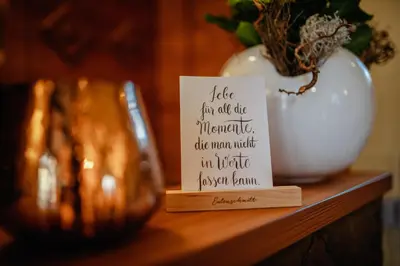 Lebe
für all die
Momente,
die man nicht
in Worte
fassen kann.